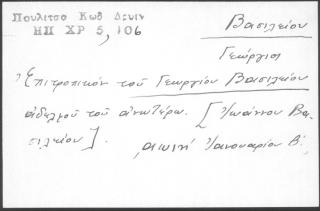 Πουλίτσα Κωδ Δεων
ΗΠ ΧΡ 5, 106
Βασιλείου
Γεώργιος
Ἐπιτροπικὸν τοῦ Γεωργίου Βασιλείου
ἀδελφοῦ τοῦ ἀνωτέρω. [Ἰωάννου Βα-
σιλείου].
Ἰανουαρίου Β.